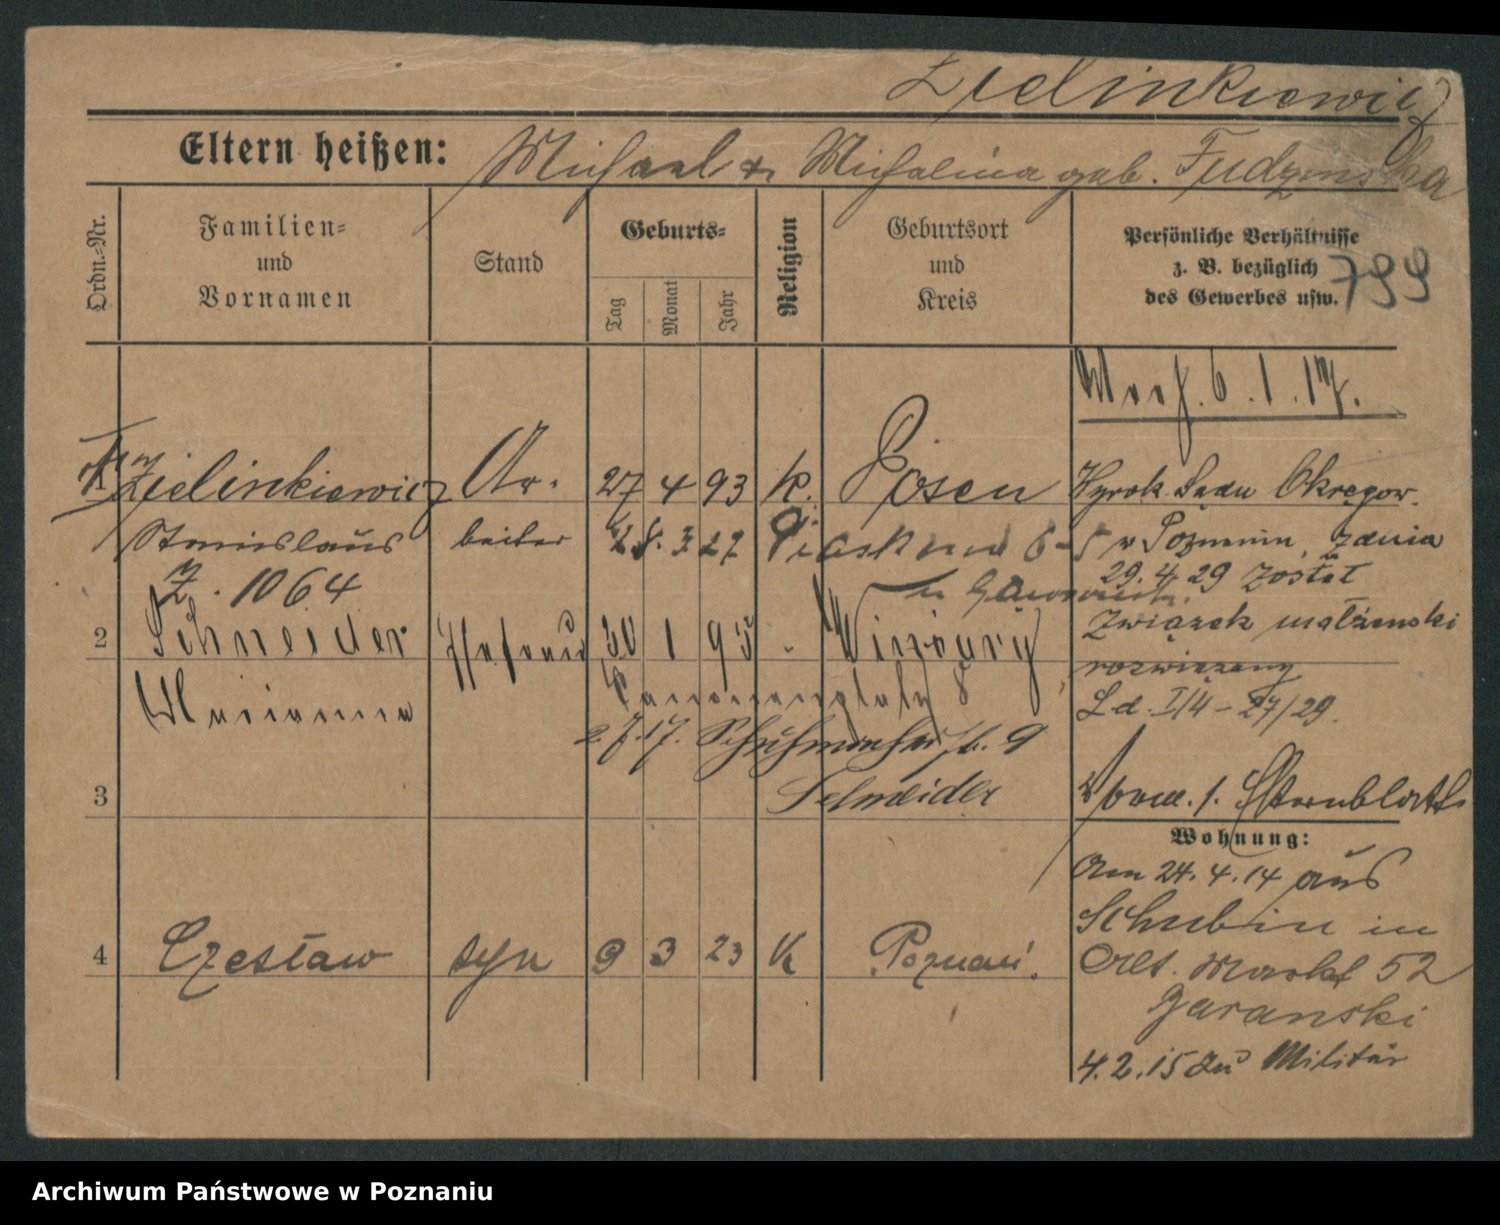 Zielinkiewicz
Eltern heißen: Michael & Michalina geb. Fudzinska
Ordn.-Nr.
Familien- und Vornamen
Stand
Geburts-
Tag
Monat
Jahr
Religion
Geburtsort und Kreis
Persönliche Verhältnisse
z. B. bezüglich
des Gewerbes usw.
799
6.1.17.
Zielinkiewicz Ar- 27 4 93 k. Posen
Stanislaus beiter 28.3.27 6-5
Z. 1064
2 Schneider Ehefrau 30 1 95
Marianna 8
2.7.17. Schuhmacherstr. 9
Schneider
3
4 Czesław syn 9 3 23 k Poznań.
Wyrok Sądu Okręgow.
w Poznaniu, z dnia
29.4.29 został
związek małżeński
rozwiązany
L.d. I/4 - 27/29.
Wohnung:
Am 24.4.14 aus
Schubin in
Alt. Markt 52
Garanski
4.2.15 zu Militär
Archiwum Państwowe w Poznaniu